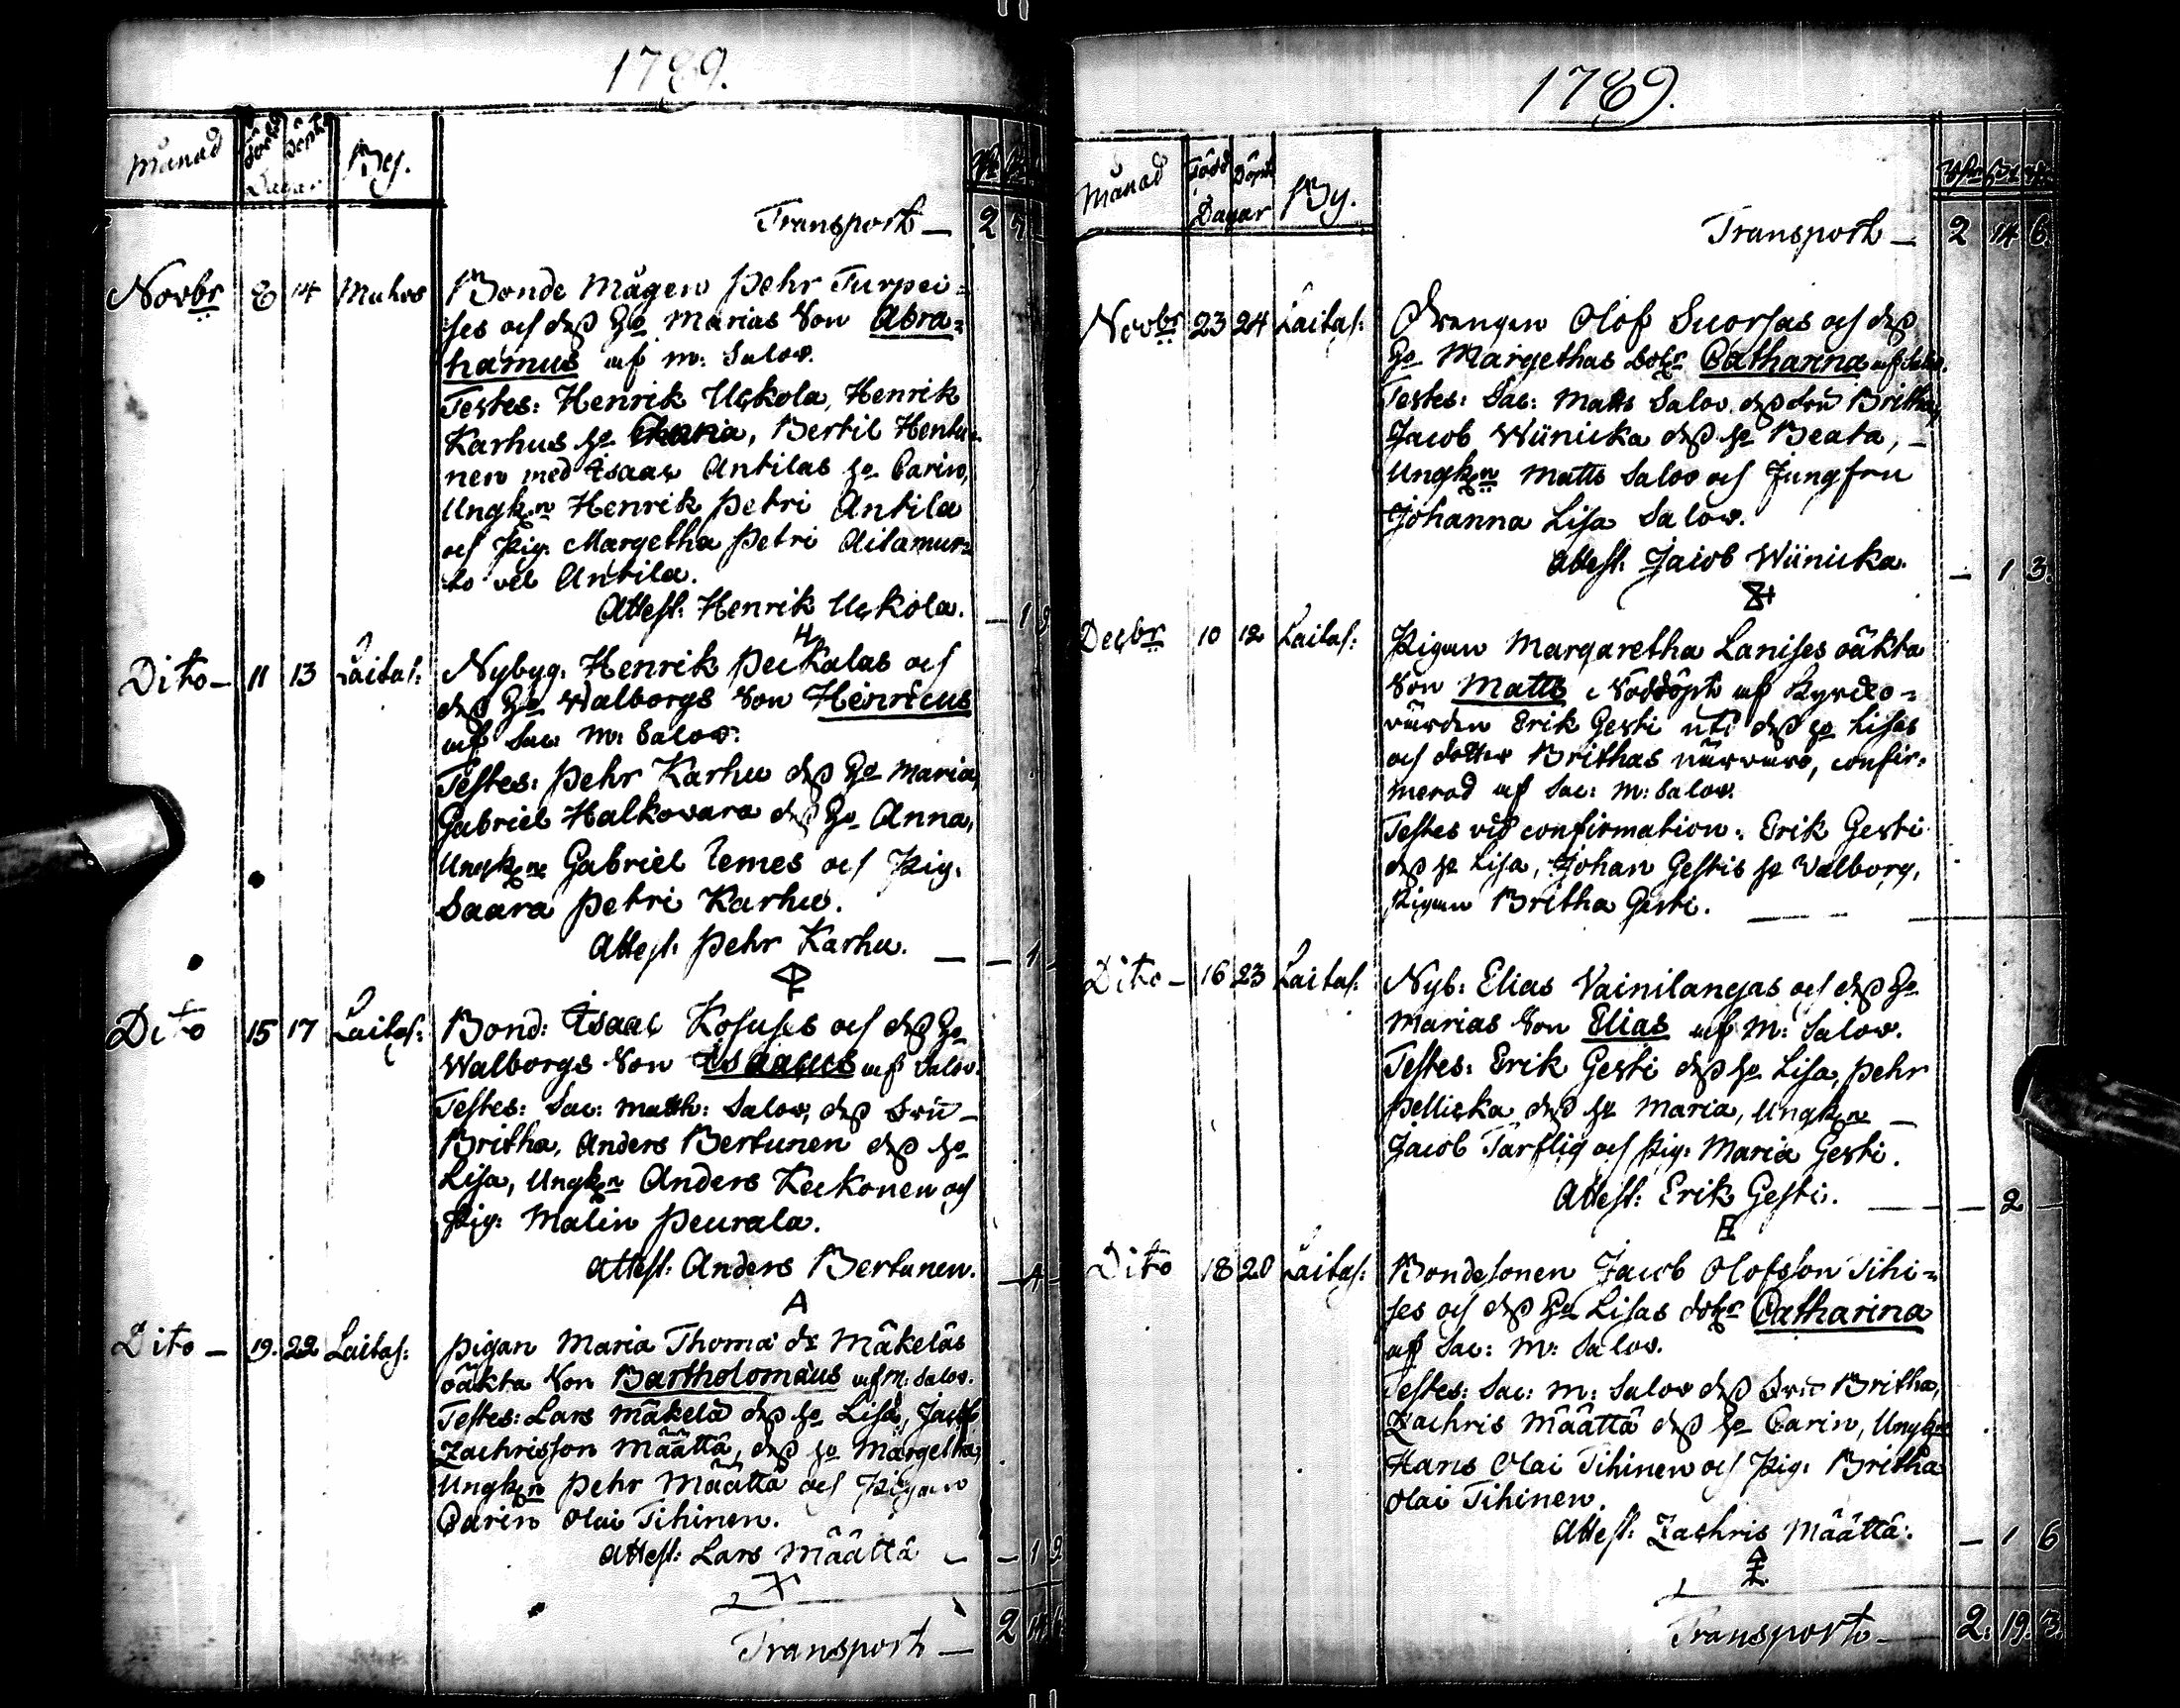 1789.
Månad Född Döpt Dagar By.
Transport — 2 7
Novbr 8 14 Muhos Bonde Mågen Pehr Turpei-
ses och dess Ho Marias Son Abra-
hamus af M: Salov.
Testes: Henrik Uckola, Henrik
Karhus Ho Maria, Bertil Hentu-
nen med Isaac Antilas Ho Carin,
Ungk:n Henrik Petri Antila
och Pig. Margetha Petri Aitamur-
to vel Antila.
Attest: Henrik Uckola. — 1
H
Dito — 11 13 Laitas: Nybyg: Henrik Peckalas och
dess Ho Walborgs Son Henricus
af Sac: M: Salov.
Testes: Pehr Karhu dess Ho Maria,
Gabriel Halkovara dess Ho Anna,
Ungk:ne Gabriel Temes och Pig.
Saara Petri Karhu.
Attest: Pehr Karhu. — — 1 —
Dito 15 17 Laitas: Bond: Isaac Kosuses och dess Ho
Walborgs Son Isaacus af Salov.
Testes: Sac: Matth: Salov, dess Fru —
Britha, Anders Bertunen dess Ho
Lisa, Ungk:n Anders Keckonen och
Pig: Malin Peurala.
Attest: Anders Bertunen.
A
Dito — 19. 22 Laitas: Pigan Maria Thomæ dr Mäkeläs
oäkta Son Bartholomæus af M: Salov.
Testes: Lars Mäkelä dess Ho Lisa, Jacob
Zachrisson Määttä, dess Ho Margetha,
Ungk:n Pehr Määttä och Pigan
Carin Olai Tihinen.
Attest: Lars Määttä — — 1
Transport — 2 14
1789.
Månad Född Döpt Dagar By.
Transport — 2 14 6.
Novbr 23 24 Laitas: Drengen Olof Suorsas och dess
Ho Margethas Dotr Catharina af Salov.
Testes: Sac: Matts Salov, dess Fru Britha,
Jacob Wiinicka dess Ho Beata, —
Ungk:n Matts Salov och Jungfru
Johanna Lisa Salov.
Attest: Jacob Wiinicka. — 1 3.
Decbr 10 12 Laitas: Pigan Margaretha Lanises oäkta
Son Matts Nöddöpt af Kyrckio-
värden Erik Gesti uti dess Ho Lisas
och dotter Brithas närvaro, confir-
merad af Sac: M: Salov.
Testes vid confirmation: Erik Gesti
dess Ho Lisa, Johan Gestis Ho Valborg,
Pigan Britha Gesti. — —
Dito — 16 23 Laitas: Nyb: Elias Vainilangas och dess Ho
Marias Son Elias af M: Salov.
Testes: Erik Gesti dess Ho Lisa, Pehr
Pellicka dess Ho Maria, Ungk:n —
Jacob Tärflig och Pig: Maria Gesti.
Attest: Erik Gesti. — — 2 —
Dito 18 20 Laitas: Bondesonen Jacob Olofsson Tihi-
ses och dess Ho Lisas dotr Catharina
af Sac: M: Salov.
Testes: Sac: M: Salov dess Fru Britha,
Zachris Määttä dess Ho Carin, Ungk:n
Hans Olai Tihinen och Pig: Britha
Olai Tihinen.
Attest: Zachris Määttä. — 1 6
Transport — 2. 19. 3.